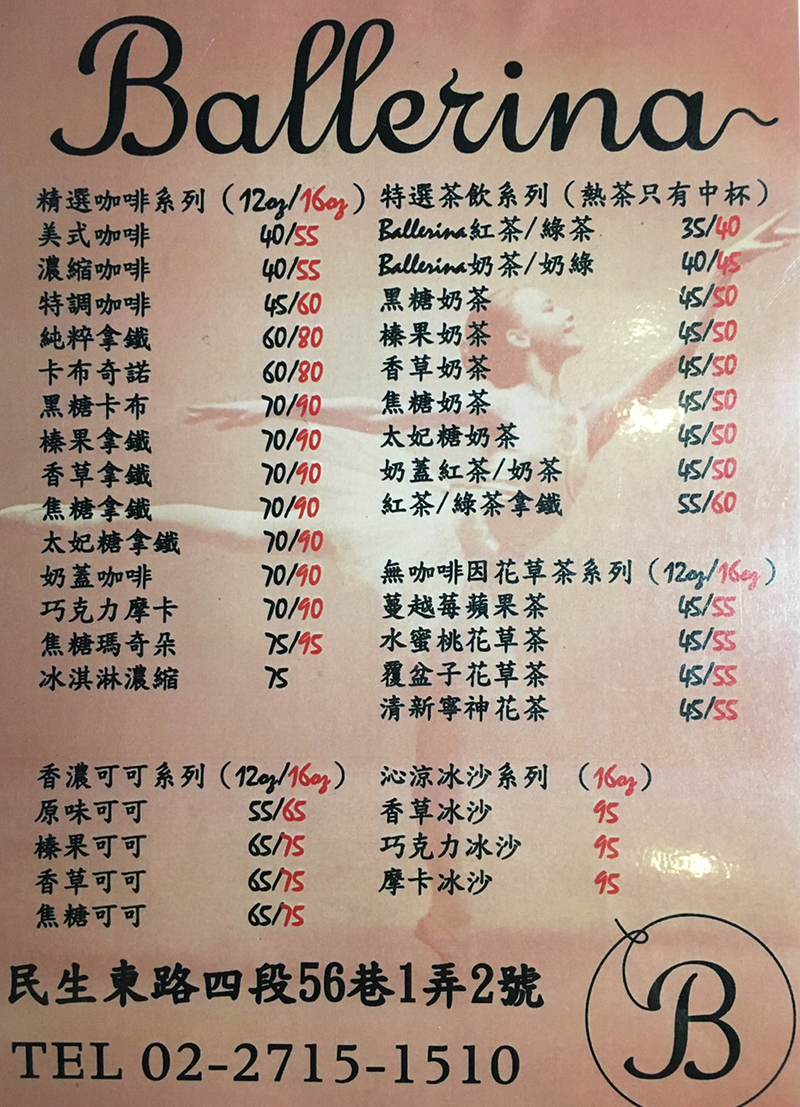 Ballerina
精選咖啡系列（12oz/16oz）
美式咖啡 40/55
濃縮咖啡 40/55
特調咖啡 45/60
純粹拿鐵 60/80
卡布奇諾 60/80
黑糖卡布 70/90
榛果拿鐵 70/90
香草拿鐵 70/90
焦糖拿鐵 70/90
太妃糖拿鐵 70/90
奶蓋咖啡 70/90
巧克力摩卡 70/90
焦糖瑪奇朵 75/95
冰淇淋濃縮 75
特選茶飲系列（熱茶只有中杯）
Ballerina紅茶/綠茶 35/40
Ballerina奶茶/奶綠 40/45
黑糖奶茶 45/50
榛果奶茶 45/50
香草奶茶 45/50
焦糖奶茶 45/50
太妃糖奶茶 45/50
奶蓋紅茶/奶茶 45/50
紅茶/綠茶拿鐵 55/60
無咖啡因花草茶系列（12oz/16oz）
蔓越莓蘋果茶 45/55
水蜜桃花草茶 45/55
覆盆子花草茶 45/55
清新寧神花茶 45/55
香濃可可系列（12oz/16oz）
原味可可 55/65
榛果可可 65/75
香草可可 65/75
焦糖可可 65/75
沁涼冰沙系列 （16oz）
香草冰沙 95
巧克力冰沙 95
摩卡冰沙 95
民生東路四段56巷1弄2號
TEL 02-2715-1510
B